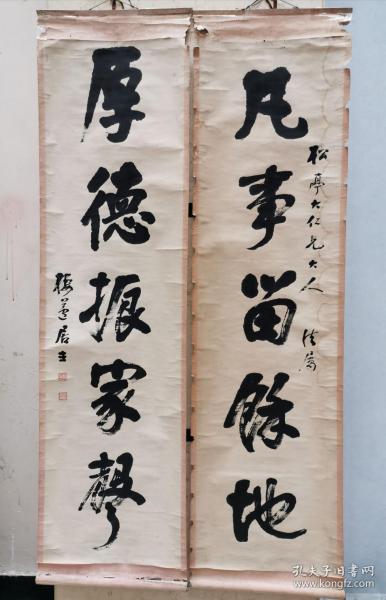 凡事留餘地
松亭大仁兄大人
法篆
厚德振家聲
居士
孔夫子旧书网
www.kongfz.com